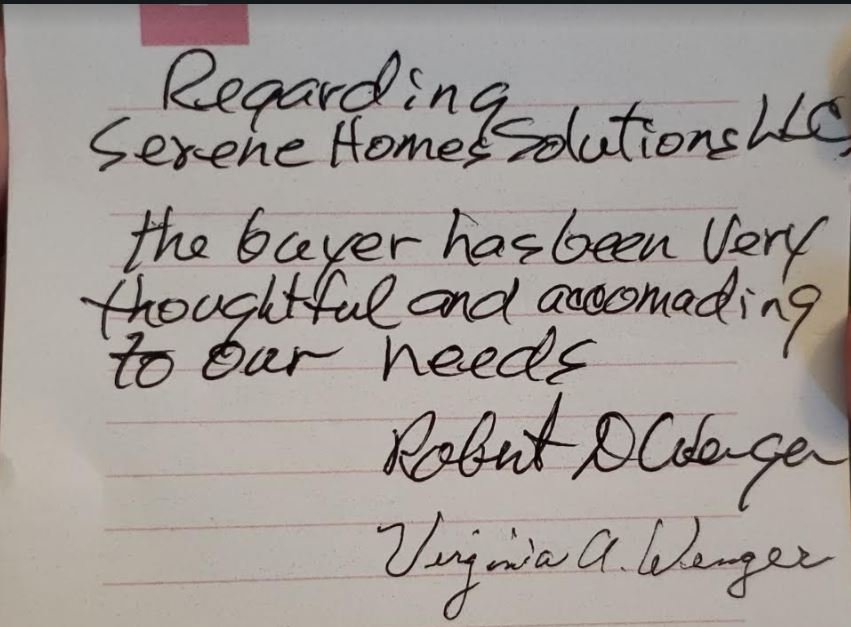 Regarding
Serene Homes Solutions LLC,
the buyer has been very
thoughtful and accomading
to our needs
Robert D Wenger
Virginia A. Wenger